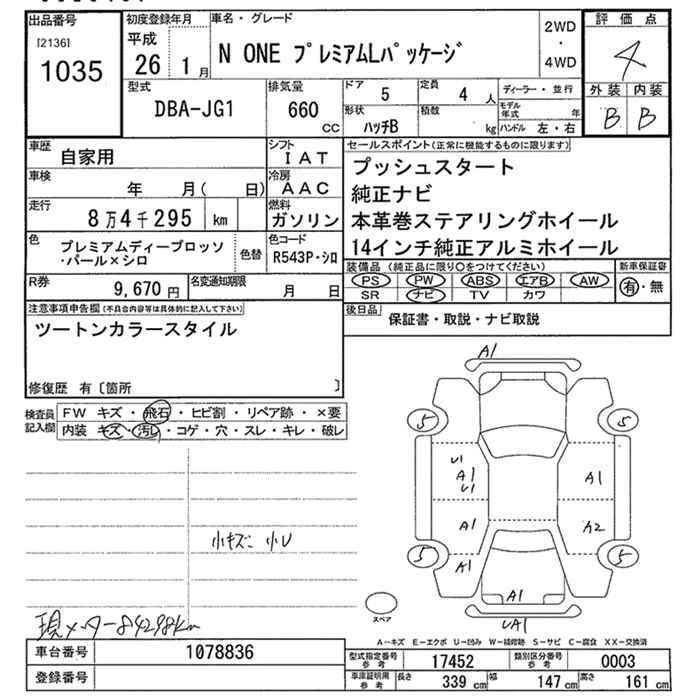 出品番号
[2136]
1035
初度登録年月
平成
26 1月
車名・グレード
N ONE プレミアムLパッケージ
2WD
・
4WD
評価点
4
外装 内装
B B
型式
DBA-JG1
排気量
660
cc
ドア 5
定員 4 人
形状
ハッチB
積数
kg
ディーラー・並行
モデル年式 年
ハンドル 左・右
車歴 自家用
シフト
IAT
車検 年 月( 日)
冷房
AAC
走行 8万4千295 km
燃料
ガソリン
色 プレミアムディープロッソ
・パール×シロ
色替
色コード
R543P・シロ
R券 9,670 円
名変通知期限 月 日
セールスポイント(正常に機能するものに限ります)
プッシュスタート
純正ナビ
本革巻ステアリングホイール
14インチ純正アルミホイール
装備品(純正品に限り○をつけてください)
PS PW ABS エアB AW
SR ナビ TV カワ
新車保証書
有・無
後日品
保証書・取説・ナビ取説
注意事項申告欄(不具合内容等は具体的に記入して下さい)
ツートンカラースタイル
修復歴 有〔箇所 〕
検査員記入欄
FW キズ・飛石・ヒビ割・リペア跡・×要
内装 キズ・汚レ・コゲ・穴・スレ・キレ・破レ
小キズ 小U
現メーター84298km
A1
5 5
U1
A1
U1
A1
A1 A2
5 5
A1
A1
UA1
スペア
A-キズ E-エクボ U-凹み W-補修跡 S-サビ C-腐食 XX-交換済
車台番号 1078836
登録番号
型式指定番号 参考 17452
類別区分番号 参考 0003
車庫証明用 参考
長さ 339 cm 幅 147 cm 高さ 161 cm